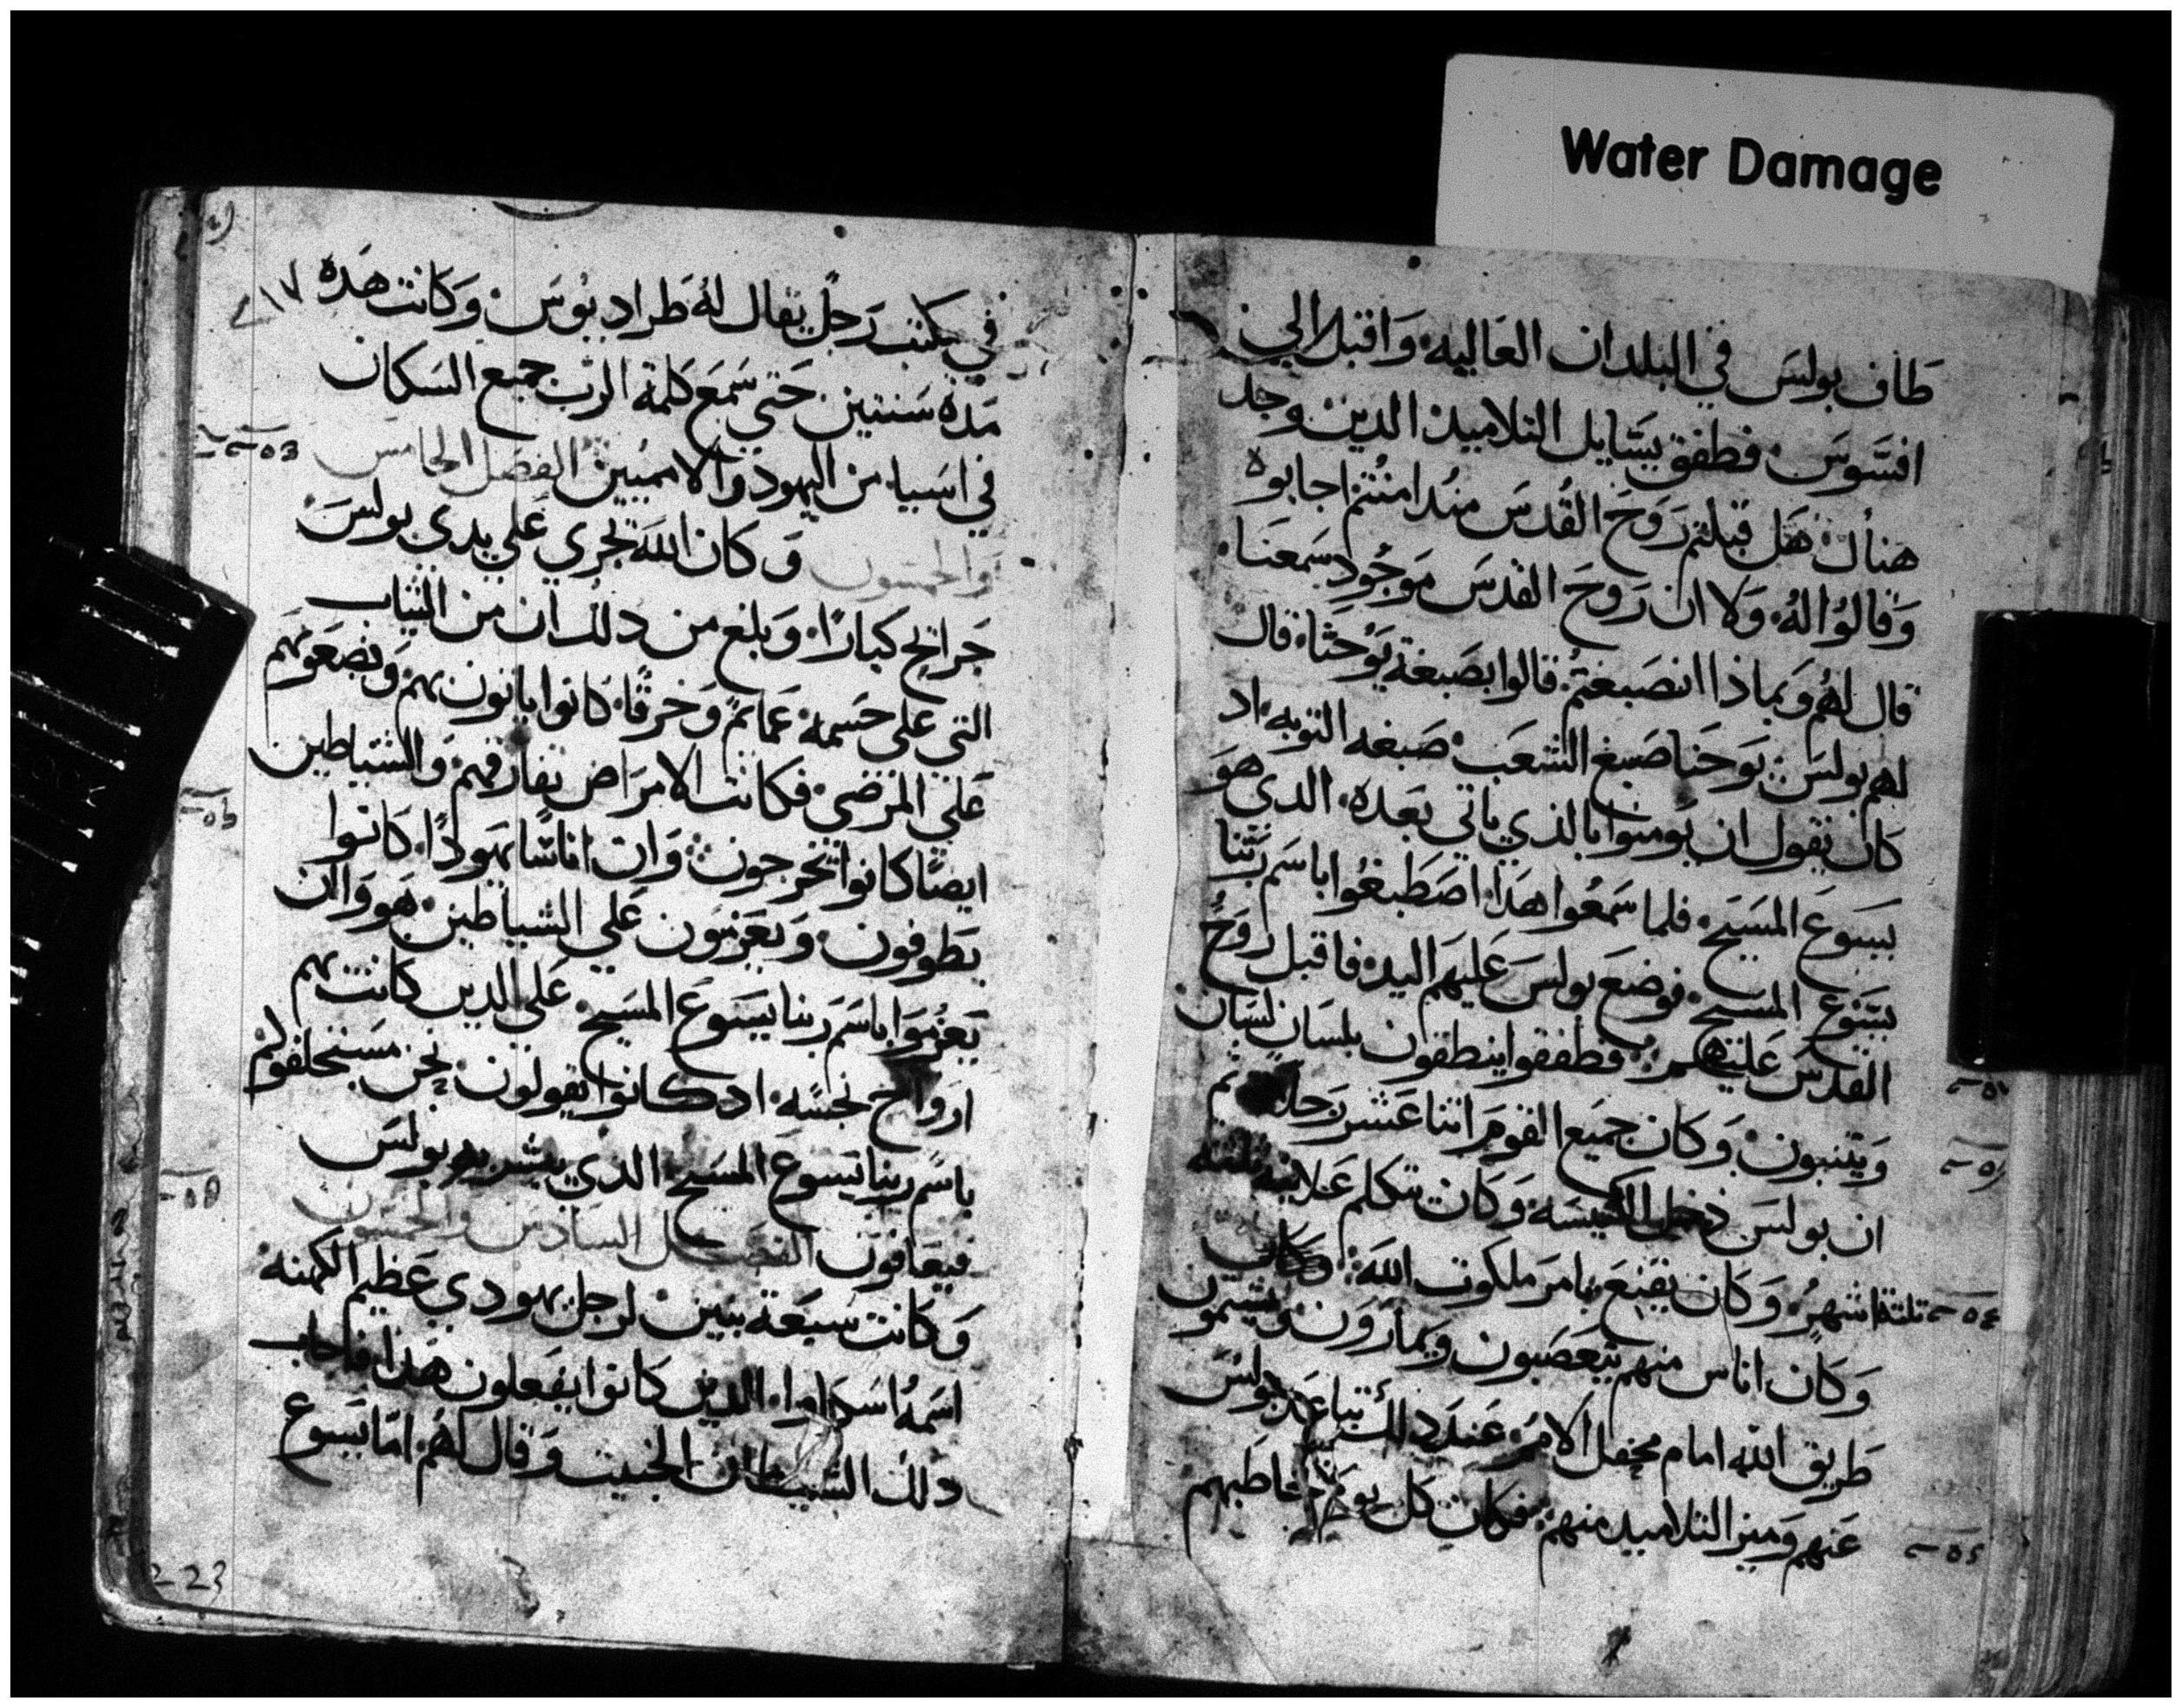 Water Damage
طاف بولس في البلدان العاليه واقبل الي
افسوس فطفق يسايل التلاميذ الذين وجد
هناك هل قبلتم روح القدس منذ امنتم اجابوه
وقالوا له ولا ان روح القدس موجود سمعنا
قال لهم وبماذا انصبغتم قالوا بصبغة يوحنا قال
لهم بولس يوحنا صبغ الشعب صبغه التوبه اد
كان يقول ان يومنوا بالذي ياتي بعده الدي هو
يسوع المسيح فلما سمعوا هدا اصطبغوا باسم ربنا
يسوع المسيح فوضع بولس عليهم اليد فاقبل روح
القدس عليهم فطفقوا ينطقون بلسان لسان
ويتنبون وكان جميع القوم اثنا عشر رجلا ثم
ان بولس دخل الكنيسه وكان يتكلم علانيه
ثلثة اشهر وكان يقنع بامر ملكوت الله وكان
وكان اناس منهم يتعصبون ويمارون ويشتمون
طريق الله امام محفل الامم عند دلك تباعد بولس
عنهم وميز التلاميد منهم فكان كل يوم يخاطبهم
٢١٧
في مكتب رجل يقال له طرادبوس وكانت هده
مدة سنتين حتي سمع كلمة الرب جميع السكان
في اسيا من اليهود والاممين الفصل الخامس
والخمسون وكان الله يجري علي يدي بولس
جرايح كبارا وبلغ من دلك ان من الثياب
التي علي جسمه عمائم وخرقا كانوا ياتون بهم ويضعونهم
علي المرضي فكانت الامراض يفارقهم والشياطين
ايضا كانوا يخرجون وان اناسا يهودا كانوا
يطوفون ويعزمون علي الشياطين هووا ان
يعزموا باسم ربنا يسوع المسيح علي الدين كانت بهم
ارواح نجسه اد كانوا يقولون نحن مستحلفوكم
باسم ربنا يسوع المسيح الدي يبشر به بولس
فيعافون الفصل السادس والخمسون
وكانت سبعة بنين لرجل يهودي عظيم الكهنه
اسمه اسكاوا الدين كانوا يفعلون هدا فاجاب
دلك الشيطان الخبيت وقال لهم اما يسوع
223